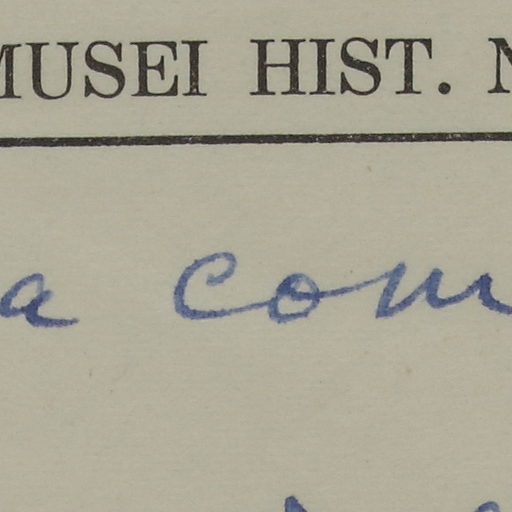 MUSEI HIST. N
a com